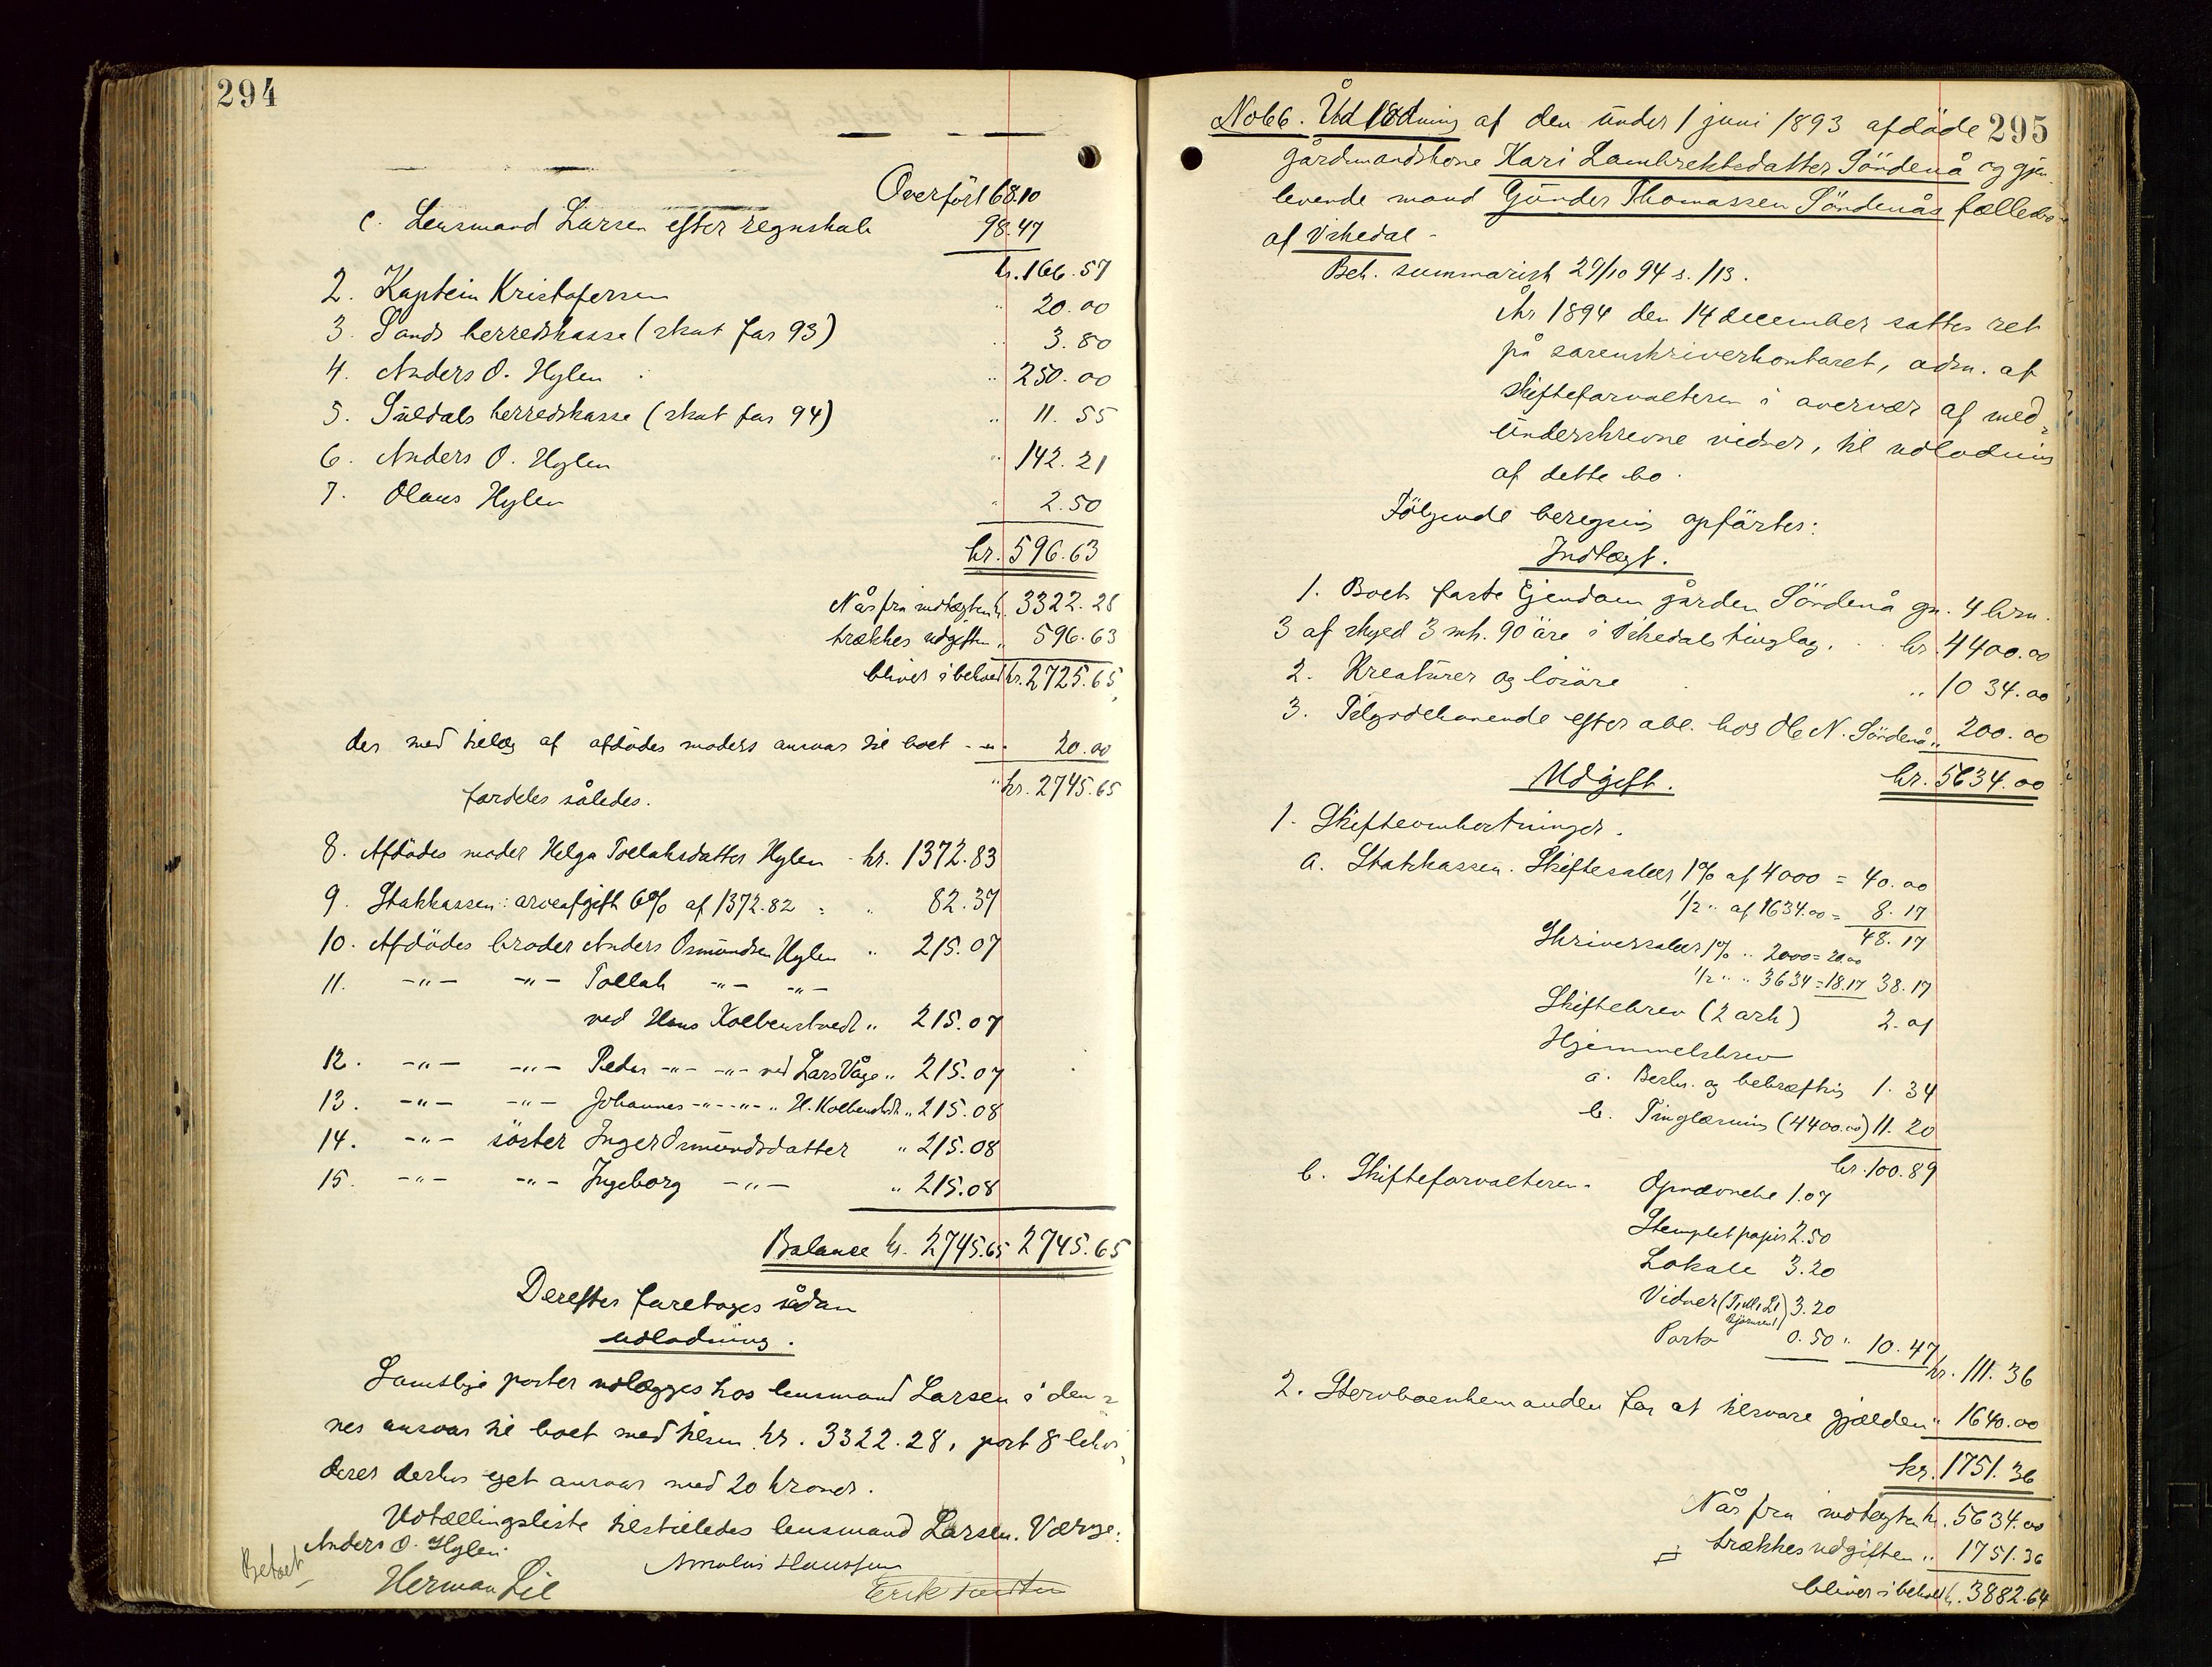 294
Overført 68.10
c. Lensmand Larsen efter regnskab 98.47
kr. 166.57
2. Kaptein Kristofersen " 20.00
3. Sands herredskasse (skat for 93) " 3.80
4. Anders O. Hylen " 250.00
5. Suldals herredskasse (skat for 94) " 11.55
6. Anders O. Hylen " 142.21
7. Olaus Hylen " 2.50
kr. 596.63
Når fra indtægten kr. 3322.28
trækkes udgiften " 596.63
bliver i behold kr. 2725.65
der med tillæg af afdødes moders ansvar til boet -"- 20.00
" kr. 2745.65
fordeles således.
8. Afdødes moder Helga Tollaksdatter Hylen - kr. 1372.83
9. Statskassen: arveafgift 6% af 1372.82 = " 82.37
10. Afdødes broder Anders Osmundsen Hylen " 215.07
11. -"- -"- Tollak -"- -"-
ved Hans Kolbenstvedt " 215.07
12. -"- -"- Peder -"- -"- ved Lars Våge " 215.07
13. -"- -"- Johannes -"- -"- " H. Kolbenstvdt " 215.08
14. -"- søster Inger Osmundsdatter " 215.08
15. -"- -"- Ingeborg -"- " 215.08
Balance kr. 2745.65 2745.65
Derefter foretoges sådan
udlodning.
Samtlige poster udlægges hos lensmand Larsen i den=
nes ansvar til boet med tilsm. kr. 3322.28, post 8 likvi=
derer derhos eget ansvar med 20 kroner.
Udtællingsliste tilstilledes lensmand Larsen. Værge:
Anders O. Hylen
Betalt
Herman Lie
Erik
295
No 66. Udlodning af den under 1 juni 1893 afdøde
gårdmandskone Kari Lambrektsdatter Söndenå og gjen=
levende mand Gunder Thomassen Söndenås fællesbo
af Vikedal -
Beh. summarisk 29/10 94 s. 113.
År 1894 den 14 december sattes ret
på sorenskriverkontoret, adm. af
skifteforvalteren i overvær af med=
underskrevne vidner, til udlodning
af dette bo.
Følgende beregning opførtes:
Indtægt.
1. Boets faste Ejendom gården Söndenå gn. 4 brn.
3 af skyld 3 mk. 90 øre i Vikedals tinglag. kr. 4400.00
2. Kreaturer og løsøre " 1034.00
3. Tilgodehavende efter obl. hos Ole N. Söndenå " 200.00
kr. 5634.00
Udgift.
1. Skifteomkostninger.
a. Statskassen. Skiftesalær 1% af 4000 = 40.00
1/2 " af 1634.00 = 8.17
48.17
Skriversalær 1% " 2000 = 20.00
1/2 " " 3634 = 18.17 38.17
Skiftebrev (2 ark) 2.01
Hjemmelsbrev
a. Beskr. og bekræftning 1.34
b. Tinglæsning (4400.00) 11.20
kr. 100.89
b. Skifteforvalteren. Opnævnelse 1.07
Stemplet papir 2.50
Lokale 3.20
Vidner 3.20
Porto 0.50 " 10.47
kr. 111.36
2. Stervboenkemanden for at tilsvare gjælden " 1640.00
kr. 1751.36
Når fra indtægten kr. 5634.00
trækkes udgiften " 1751.36
bliver i behold kr. 3882.64